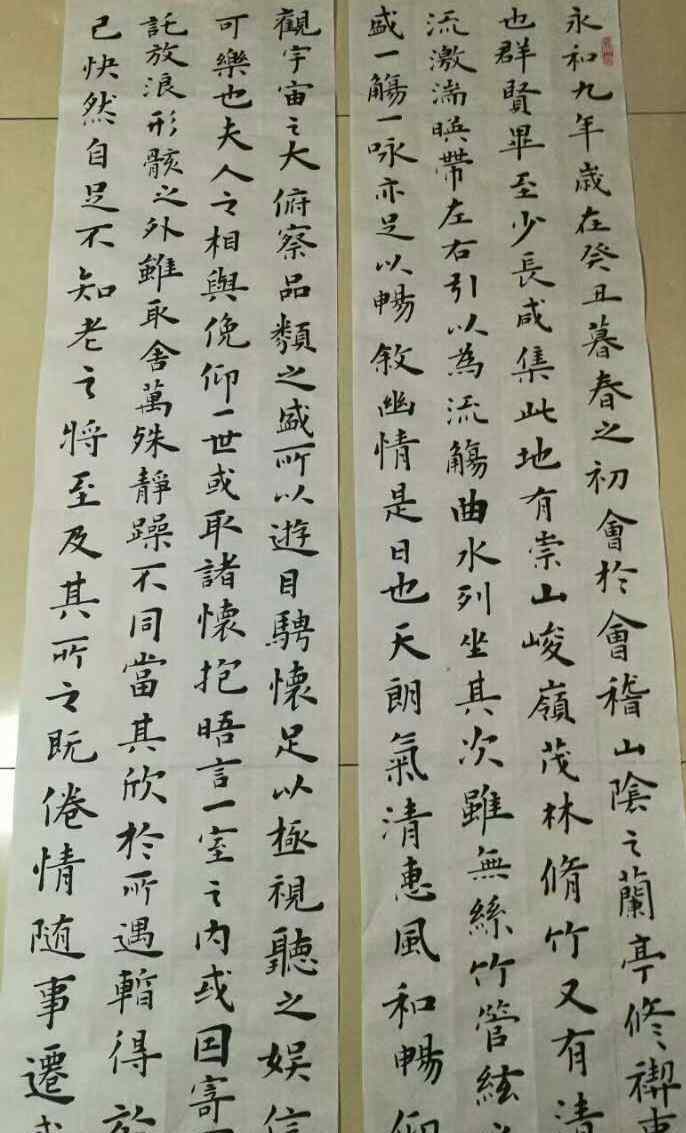 永和九年歲在癸丑暮春之初會於會稽山陰之蘭亭修禊事
也群賢畢至少長咸集此地有崇山峻嶺茂林脩竹又有清
流激湍暎帶左右引以為流觴曲水列坐其次雖無絲竹管絃之
盛一觴一咏亦足以暢敘幽情是日也天朗氣清惠風和暢仰
觀宇宙之大俯察品類之盛所以遊目騁懷足以極視聽之娛信
可樂也夫人之相與俛仰一世或取諸懷抱晤言一室之內或因寄
託放浪形骸之外雖取舍萬殊靜躁不同當其欣於所遇暫得於
己快然自足不知老之將至及其所之既倦情隨事遷